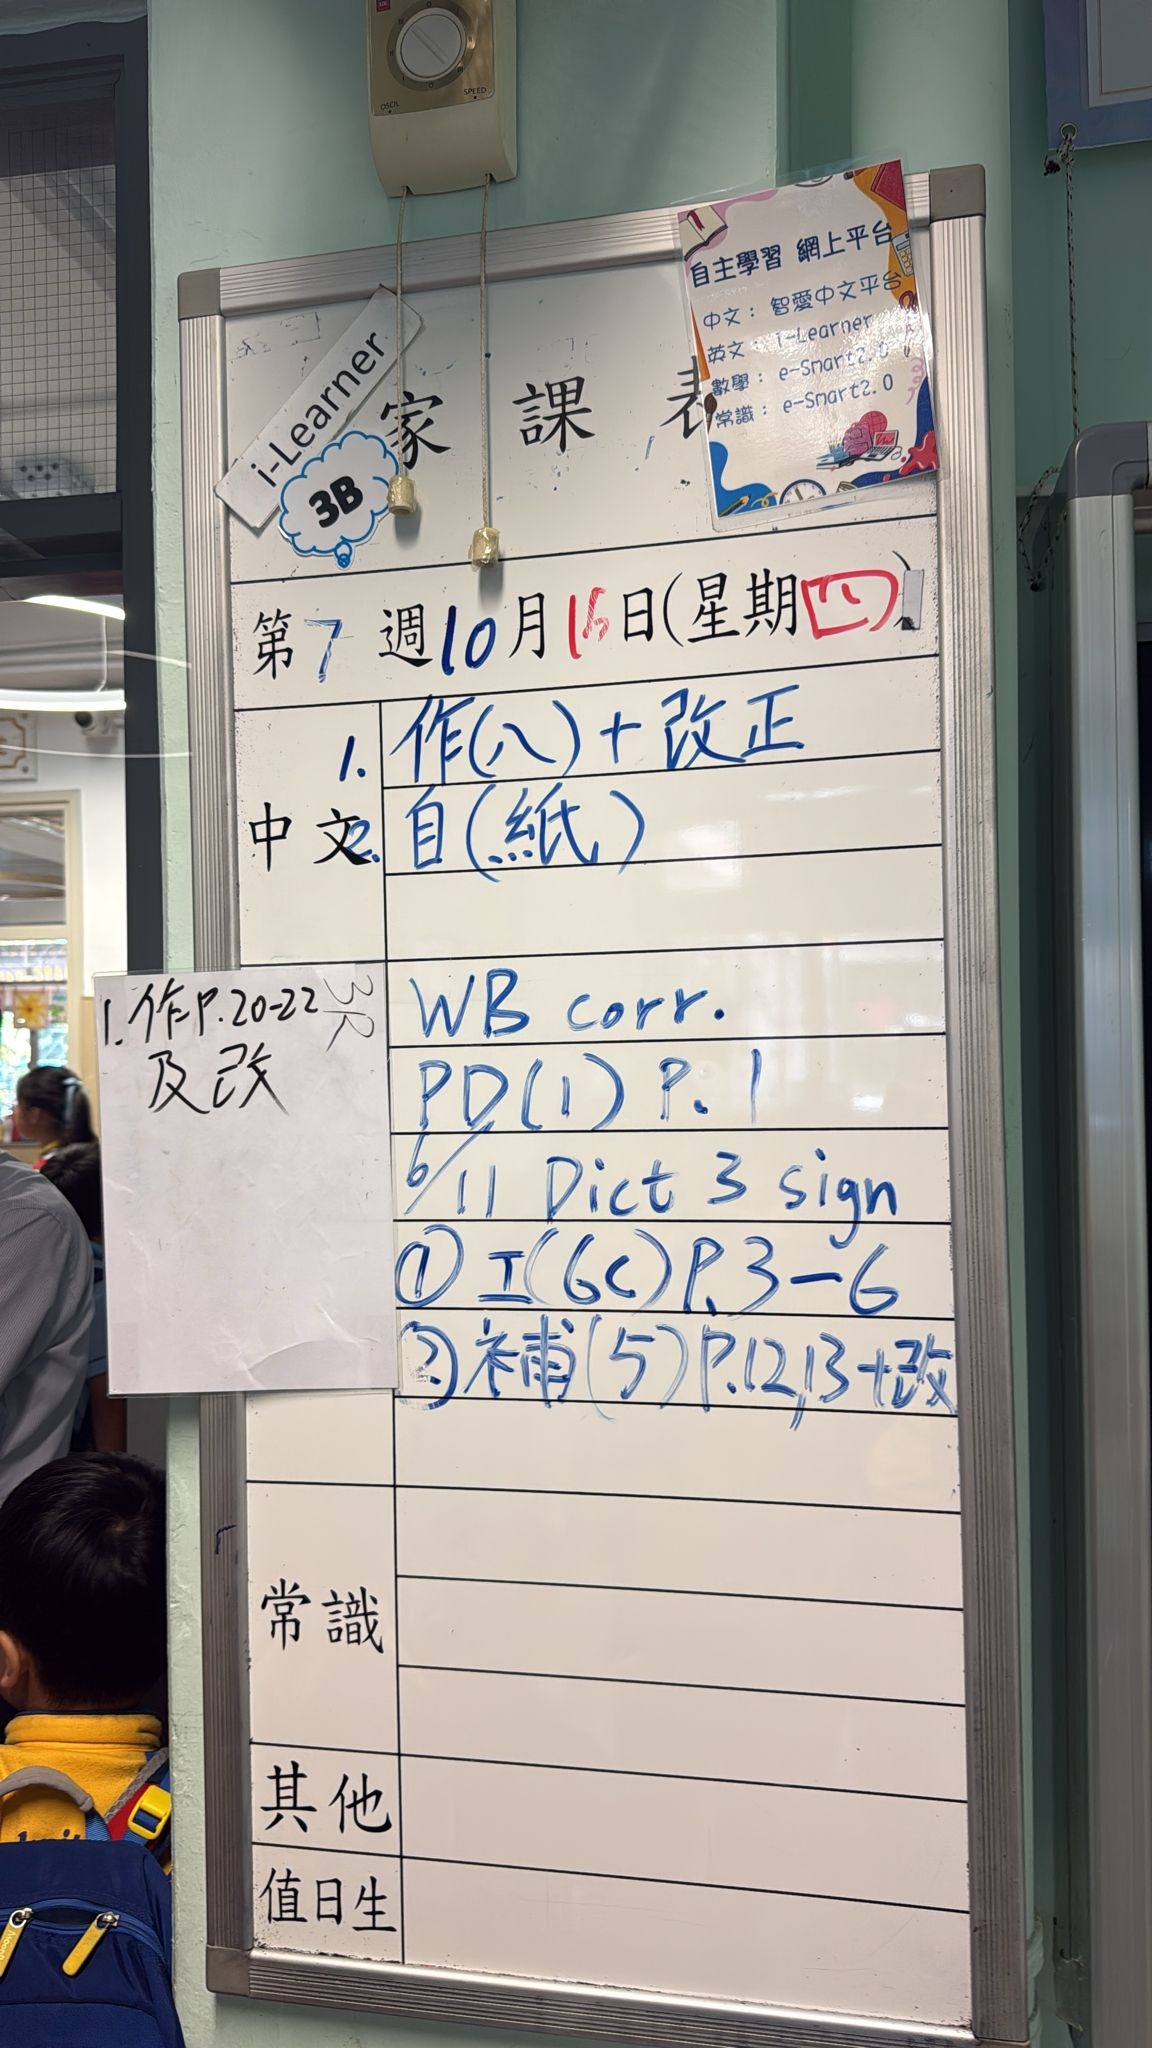 OSCIL
SPEED
自主學習 網上平台
中文： 智愛中文平台
英文： i-Learner
數學： e-Smart2.0
常識： e-Smart2.0
i-Learner
3B
家課表
第7週10月16日(星期四)
中文
1. 作(八)+改正
2. 自(紙)
1. 作P.20-22
及改
3R
WB corr.
PD(1) P.1
6/11 Dict 3 sign
① 工(6C)P.3-6
② 補(5)P.12,13+改
常識
其他
值日生